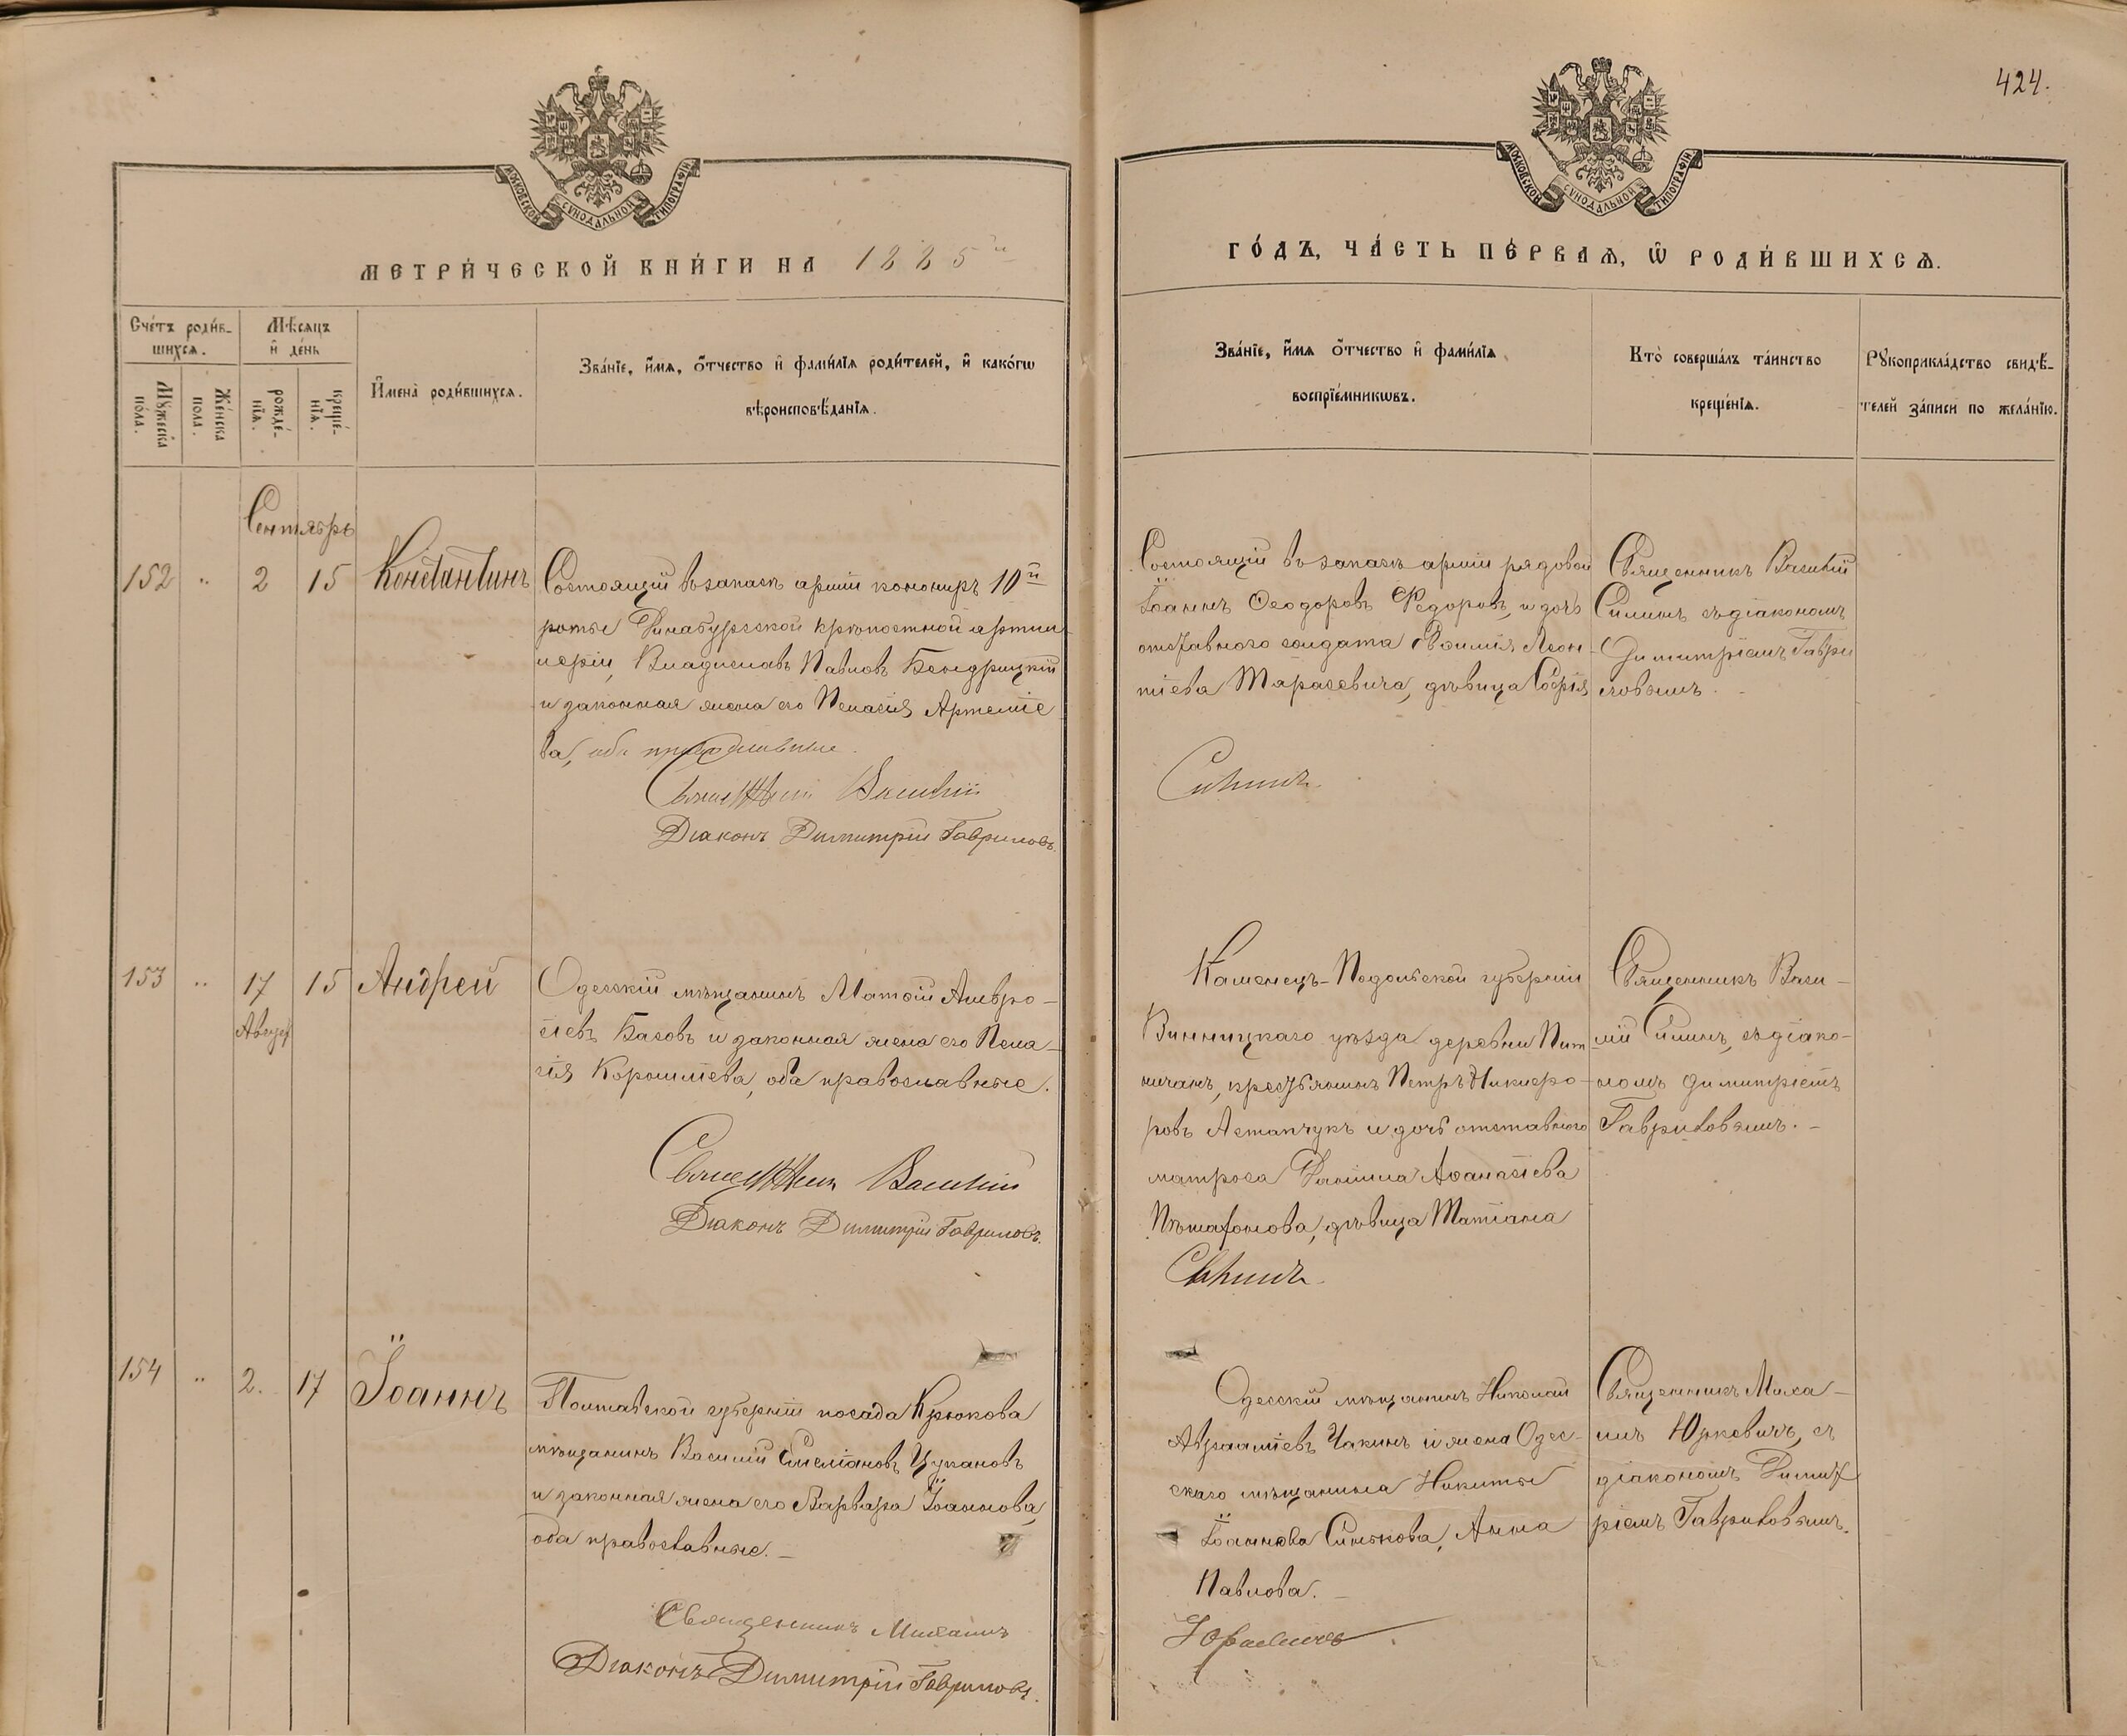 424.
МОСКОВСКОЙ СѴНОДАЛЬНОЙ ТИПОГРАФІИ
МОСКОВСКОЙ СѴНОДАЛЬНОЙ ТИПОГРАФІИ
МЕТРИ́ЧЕСКОЙ КНИ́ГИ НА 1885й
ГО́ДЪ, ЧА́СТЬ ПЕ́РВАѦ, Ѡ РОДИ́ВШИХСѦ.
Сче́тъ роди́в-
шихсѧ.
Мꙋ́жеска по́ла.
Же́нска пола.
Мѣ́сѧцъ
и҆ де́нь
рожде́-нїѧ.
креще́-нїѧ.
И҆мена̀ роди́вшихсѧ.
Зва́нїе, и҆́мѧ, ѻ҆́тчество и҆ фами́лїѧ роди́телей, и҆ како́гѡ
вѣроисповѣ́данїѧ.
Зва́нїе, и҆́мѧ ѻ҆́тчество и҆ фами́лїѧ
воспрїе́мникѡвъ.
Кто̀ соверша́лъ та́инство
креще́нїѧ.
Рꙋкоприкла́дство свидѣ́-
телей за́писи по жела́нїю.
Сентябрь
152 " 2 15 Константинъ
Состоящій въ запасѣ арміи канониръ 10й
роты Динабургской крѣпостной артил
леріи, Владиславъ Павловъ Бендрицкій
и законная жена его Пелагія Артеміе
ва, оба православные.
Священникъ Василій
Діаконъ Димитрій Гавриловъ.
Состоящій въ запасѣ арміи рядовой
Іоаннъ Ѳеодоровъ Федоровъ, и дочь
отставного солдата Леон-
тіева Тарасевича, дѣвица Софія
Силинъ
Священникъ Василій
Силинъ съ діакономъ
Димитріемъ Гаври
ловымъ.
153 " 17 15 Андрей
Август
Одесскій мѣщанинъ Матѳій Амвро-
сіевъ Басовъ и законная жена его Пела-
гія Корниліева, оба православные.
Священникъ Василій
Діаконъ Димитрій Гавриловъ.
Каменецъ-Подольской губерніи
Винницкаго уѣзда деревни
крестьянинъ Петръ Никифо-
ровъ Астапчукъ и дочь отставного
матроса Даніила Аѳанасіева
дѣвица Татіана
Силинъ
Священникъ Васи-
лій Силинъ, съ діако-
номъ Димитріемъ
Гавриловымъ.-
154 " 2. 17 Іоаннъ
Полтавской губерніи посада Крюкова
мѣщанинъ Василій Емеліановъ Цукановъ
и законная жена его Варвара Іоаннова,
оба православные.-
Священникъ Михаилъ
Діаконъ Димитрій Гавриловъ.
Одесскій мѣщанинъ Николай
Авраамiевъ Чакинъ и жена Одес-
скаго мѣщанина Никиты
Іоаннова Синькова, Анна
Павлова.-
Юркевичъ
Священникъ Миха-
илъ Юркевичъ, съ
діакономъ Димит
ріемъ Гавриловымъ.